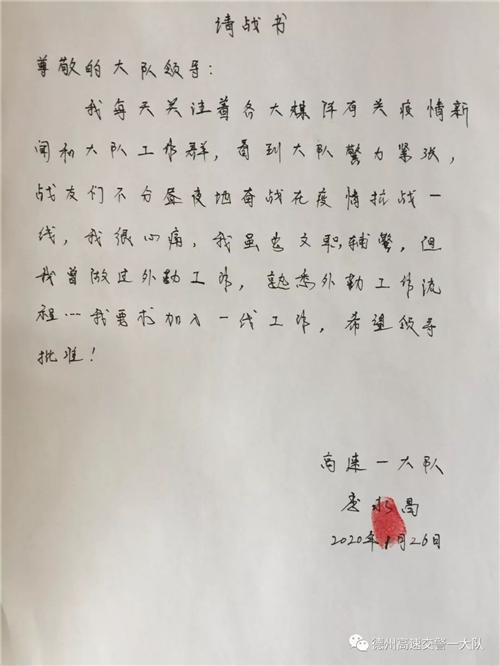 请战书
尊敬的大队领导：
我每天关注着各大媒体有关疫情新
闻和大队工作群，看到大队警力紧张，
战友们不分昼夜地奋战在疫情抗战一
线，我很心痛，我虽为文职辅警，但
我曾做过外勤工作，熟悉外勤工作流
程…我要求加入一线工作，希望领导
批准！
高速一大队
2020年1月26日
德州高速交警一大队